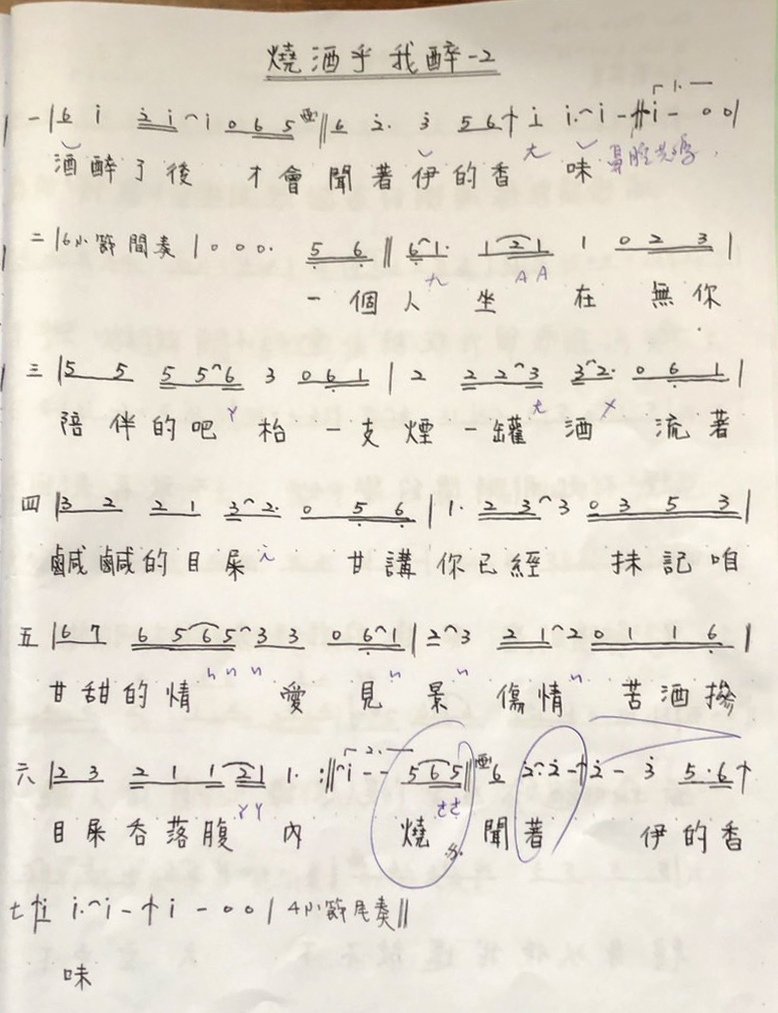 燒酒乎我醉-2
一 | 6 i 2 i i 0 6 5 ‖ 6 2· 3 5 6 i i· i - ‖ i - 0 0 |
酒醉了後 才會聞著伊的香 味 鼻腔共鳴
二 | 6小節間奏 | 0 0 0· 5 6 ‖ 6 1· 1 2 1 1 0 2 3 |
一個人 坐 在 無你
三 | 5 5 5 5 6 3 0 6 1 | 2 2 2 3 3 2· 0 6 1 |
陪伴的吧 枱 一支煙一罐 酒 流著
四 | 3 2 2 1 3 2· 0 5 6 | 1· 2 3 3 0 3 5 3 |
鹹鹹的目屎 甘講你已經 抹記咱
五 | 6 7 6 5 6 5 3 3 0 6 1 | 2 3 2 1 2 0 1 1 6 |
甘甜的情 愛 見 景 傷情 苦酒摻
六 | 2 3 2 1 1 2 1 1· :‖ 2. i - - 5 6 5 ‖ 6 2· 2 - 2 - 3 5·6
目屎吞落腹 內 燒 聞著 伊的香
七 i i· i - i - 0 0 | 4小節尾奏 ‖
味